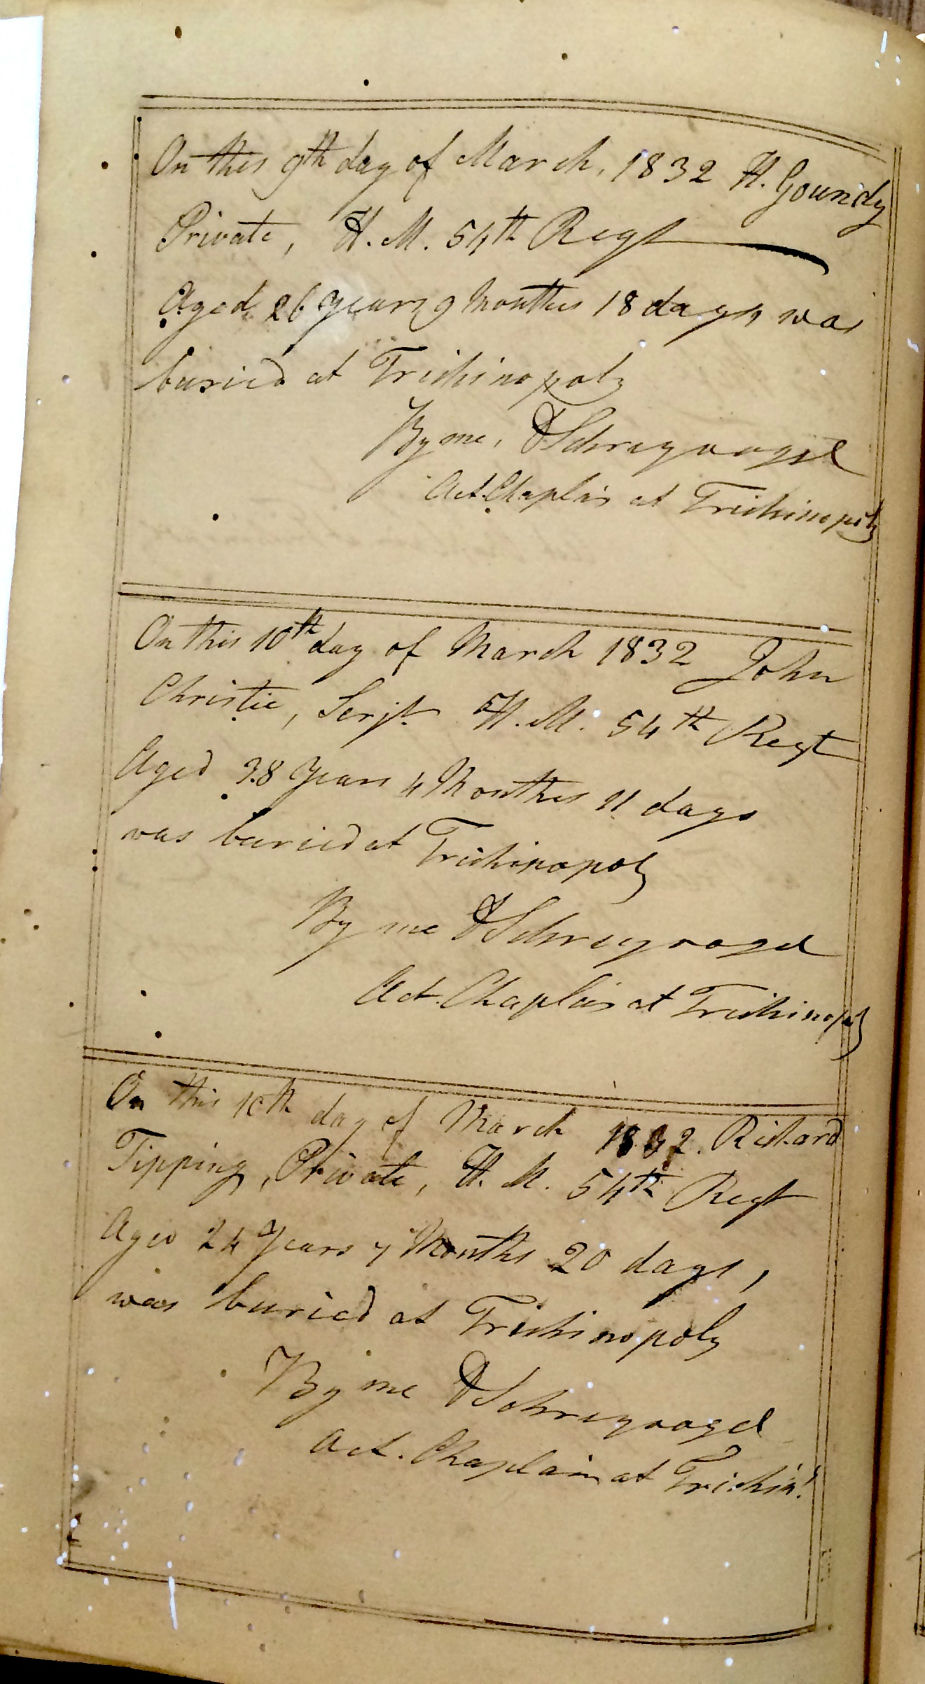 On this 9th day of March, 1832 H. Goundy
Private, H. M. 54th Regt
Aged 26 Years 9 Months 18 days was
buried at Trichinopoly
By me, D Schreyvogel
Act. Chaplain at Trichinopoly
On this 10th day of March 1832 John
Christie, Serjt. H. M. 54th Regt
Aged 38 Years 4 Months 11 days
was buried at Trichinopoly
By me D Schreyvogel
Act. Chaplain at Trichinopoly
On this 10th day of March 1832. Richard
Tipping, Private, H. M. 54th Regt
Aged 24 Years 7 Months 20 days,
was buried at Trichinopoly
By me D Schreyvogel
Act. Chaplain at Trichin!